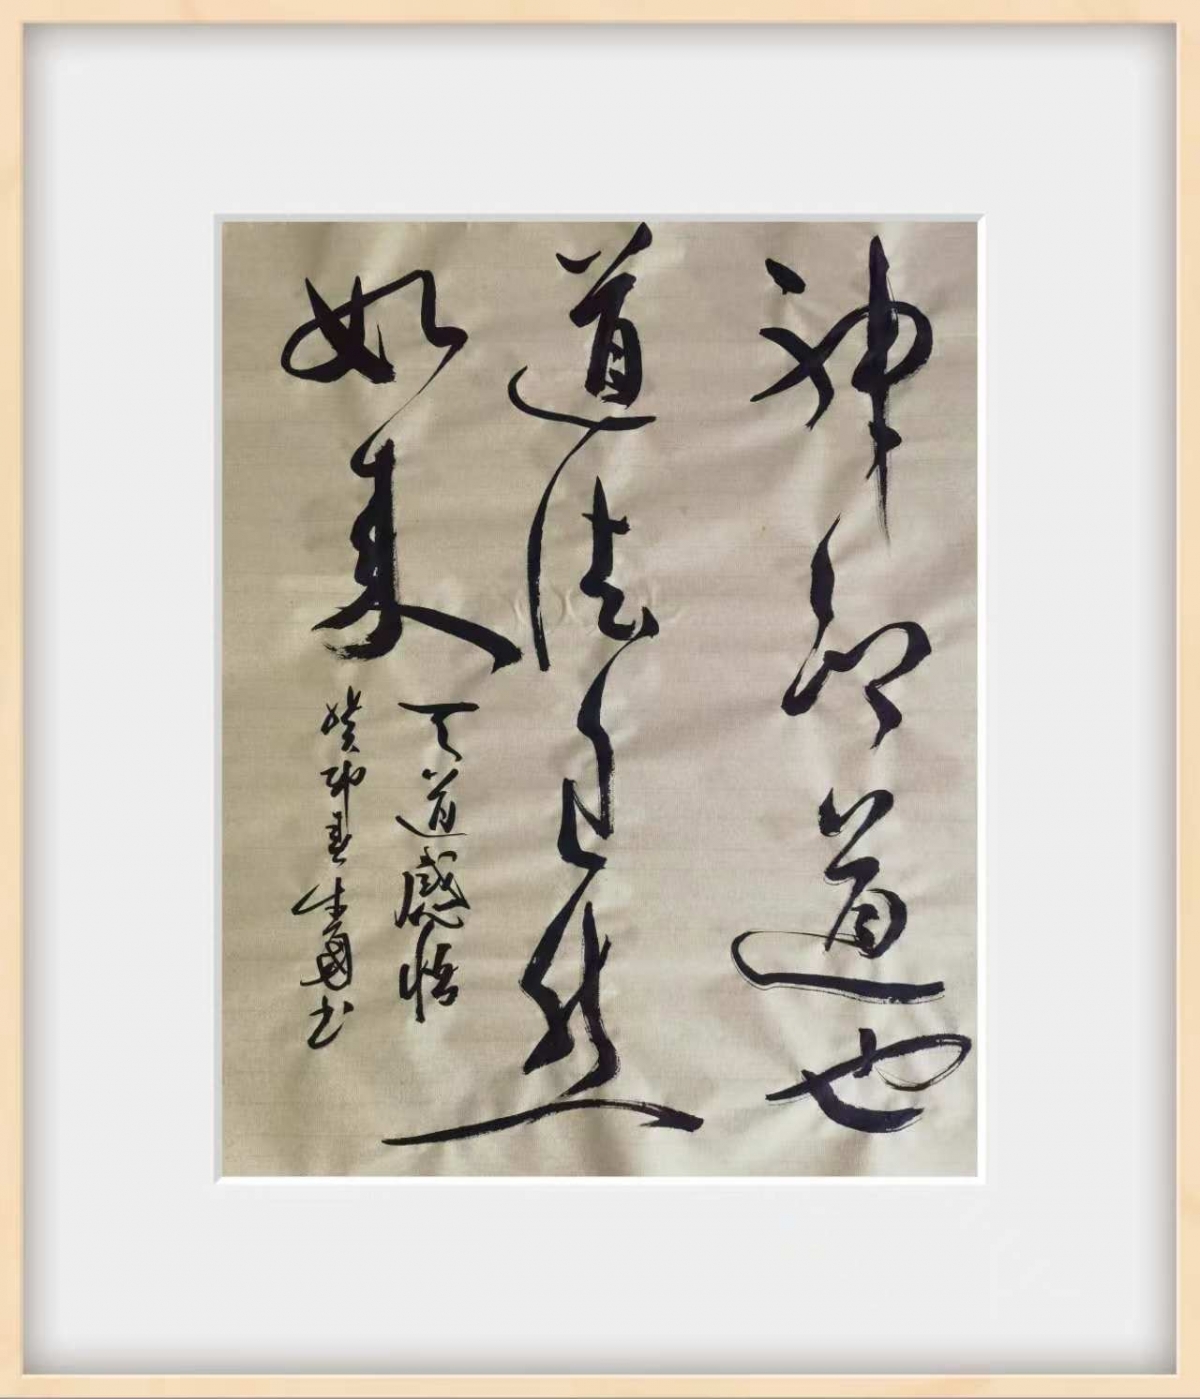 神即道也
道法自然
如来
天道感悟
癸卯春 生勇书